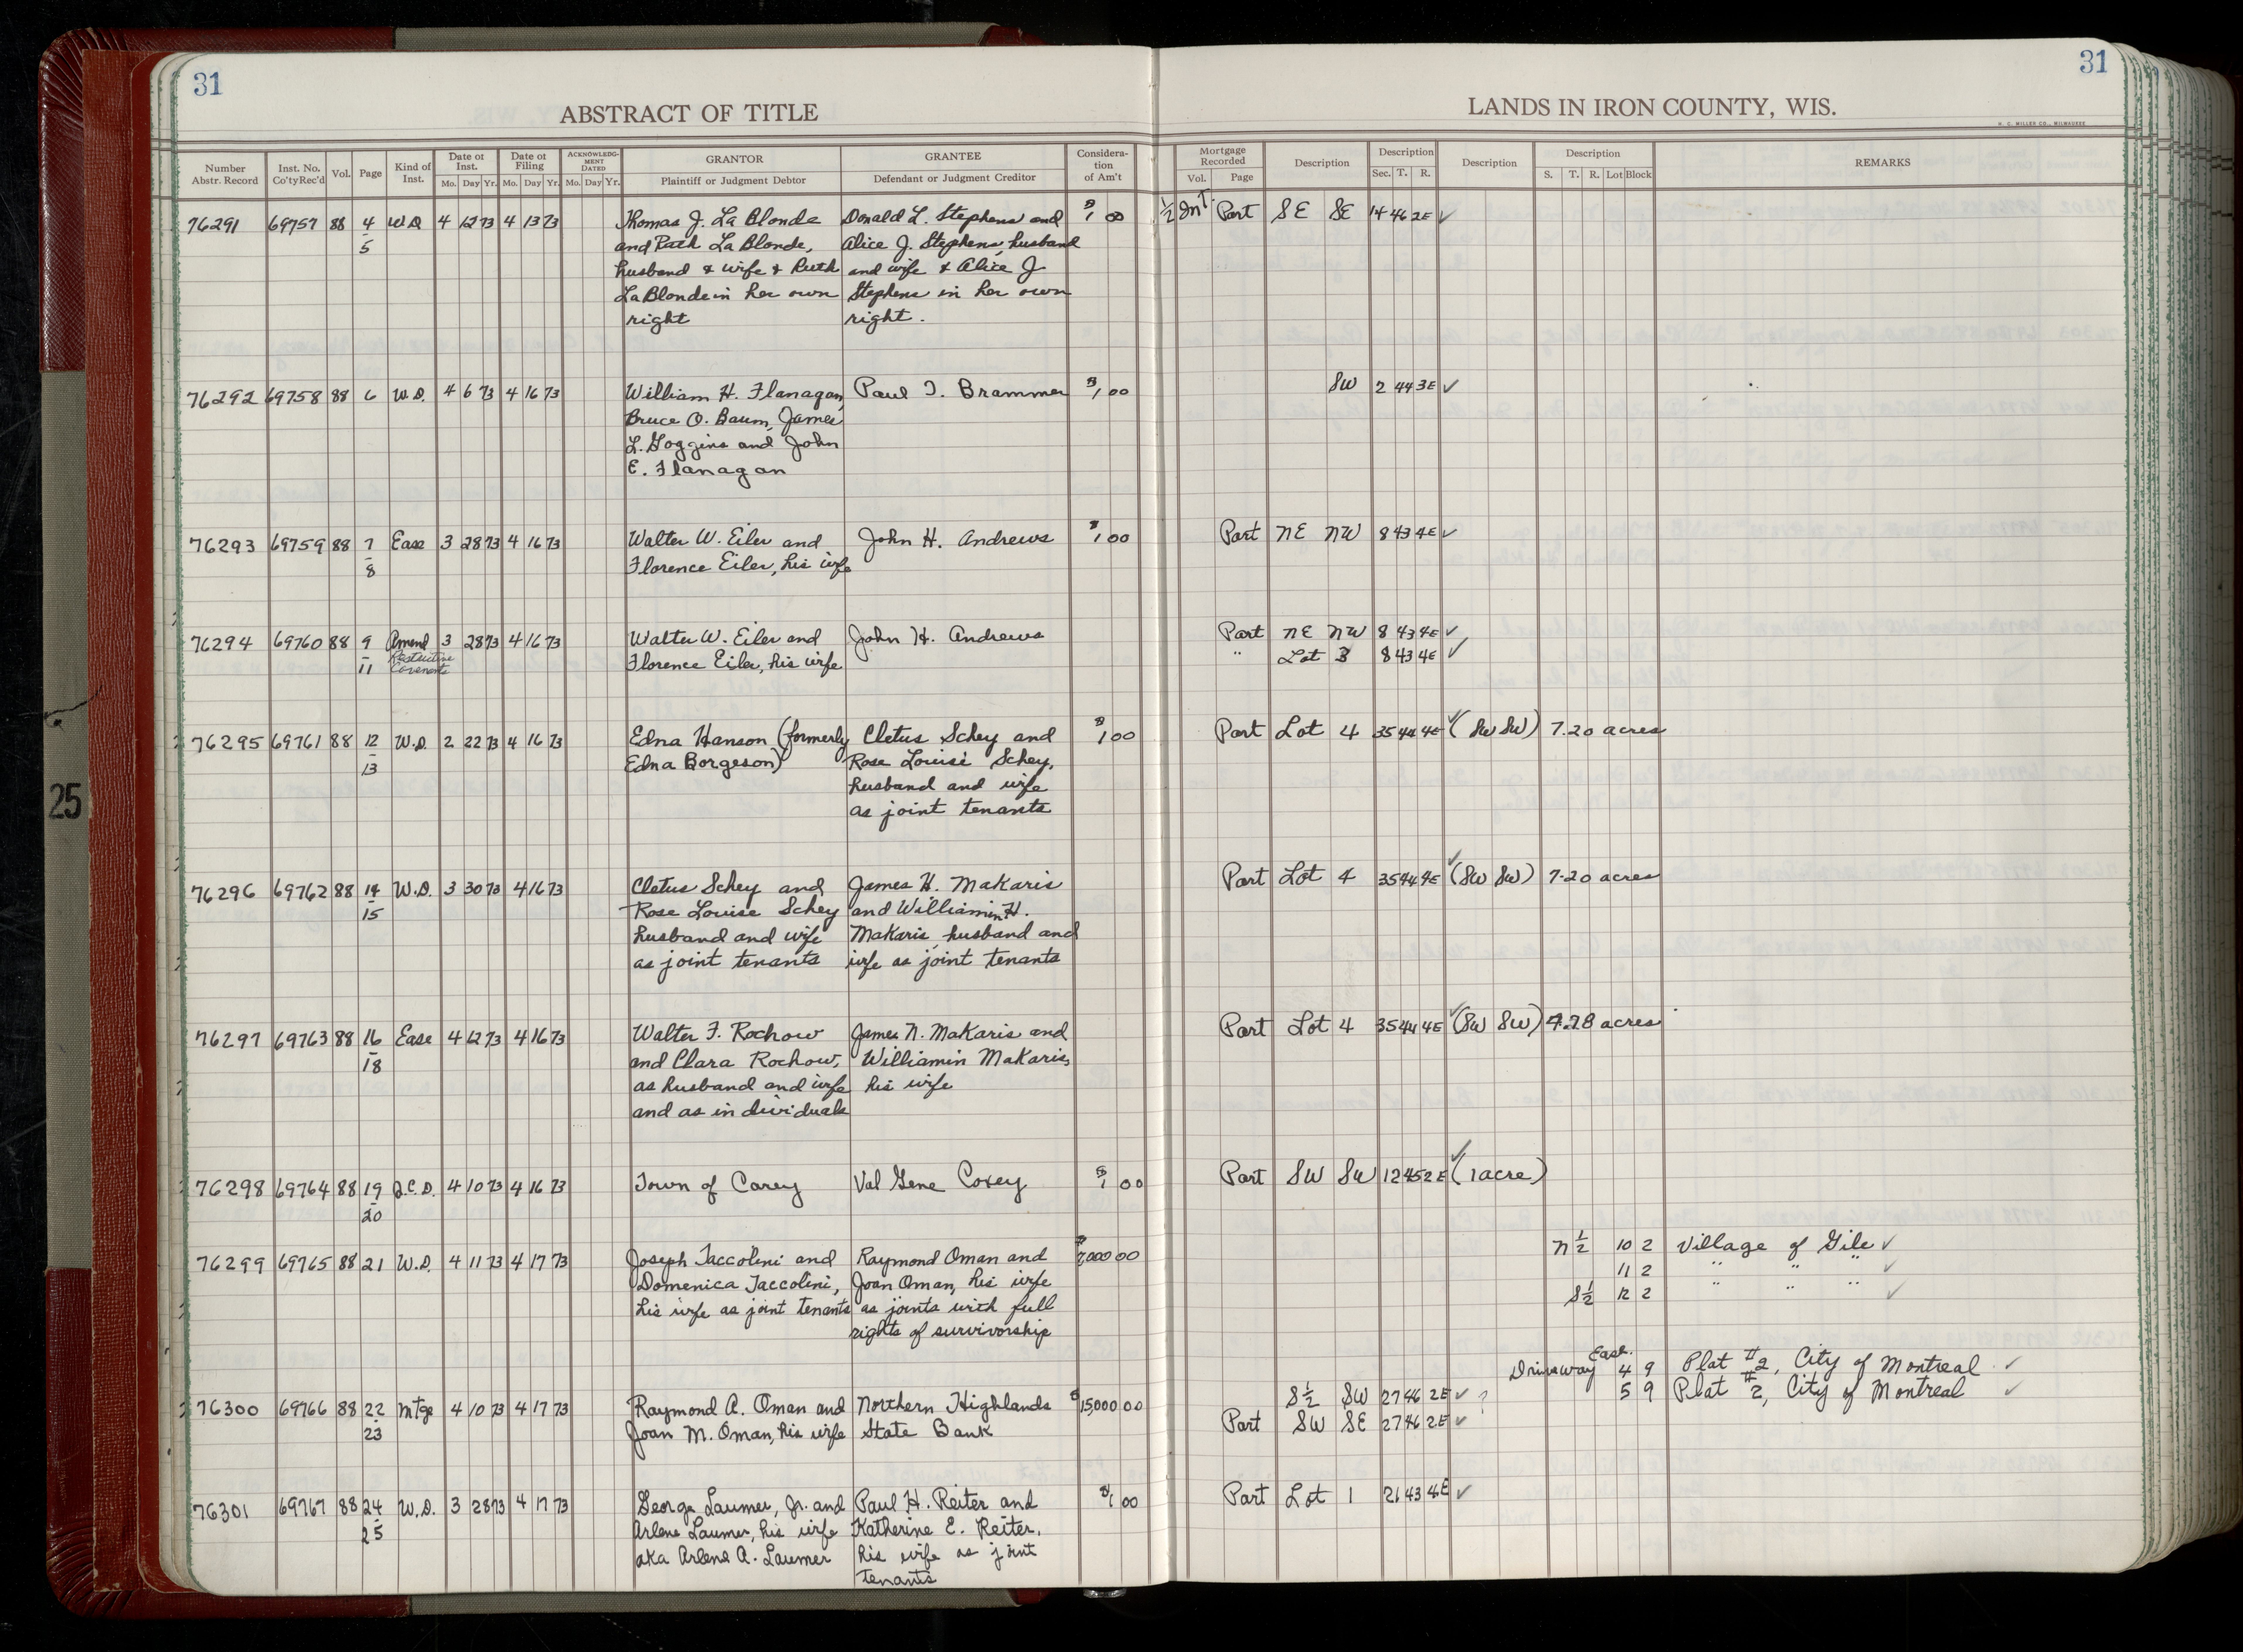 31
31
ABSTRACT OF TITLE
LANDS IN IRON COUNTY, WIS.
H. C. MILLER CO., MILWAUKEE
Number Abstr. Record | Inst. No. Co'ty Rec'd | Vol. | Page | Kind of Inst. | Date of Inst. Mo. Day Yr. | Date of Filing Mo. Day Yr. | ACKNOWLEDGMENT DATED Mo. Day Yr. | GRANTOR Plaintiff or Judgment Debtor | GRANTEE Defendant or Judgment Creditor | Consideration of Am't | Mortgage Recorded Vol. Page | Description | Description Sec. T. R. | Description | Description S. T. R. Lot Block | REMARKS
76291 69757 88 4 W.D. 4 12 73 4 13 73 Thomas J. La Blonde Donald L. Stephens and $1 00 ½ Int. Part SE SE 14 46 2E ✓
5 and Ruth La Blonde, Alice J. Stephens, husband
husband & wife & Ruth and wife & Alice J.
La Blonde in her own Stephens in her own
right right.
76292 69758 88 6 W.D. 4 6 73 4 16 73 William H. Flanagan, Paul T. Brammer $1 00 SW 2 44 3E ✓
Bruce O. Baum, James
L. Goggins and John
E. Flanagan
76293 69759 88 7 Ease 3 28 73 4 16 73 Walter W. Eiler and John H. Andrews $1 00 Part NE NW 8 43 4E ✓
8 Florence Eiler, his wife
76294 69760 88 9 Amend 3 28 73 4 16 73 Walter W. Eiler and John H. Andrews Part NE NW 8 43 4E ✓
11 Restrictive Florence Eiler, his wife " Lot 3 8 43 4E ✓
Covenants
76295 69761 88 12 W.D. 2 22 73 4 16 73 Edna Hanson (formerly Cletus Schey and $1 00 Part Lot 4 35 44 4E ✓ (SW SW) 7.20 acres
13 Edna Borgeson) Rose Louise Schey,
husband and wife
as joint tenants
76296 69762 88 14 W.D. 3 30 73 4 16 73 Cletus Schey and James H. Makaris Part Lot 4 35 44 4E ✓ (SW SW) 7.20 acres
15 Rose Louise Schey and Williamin H.
husband and wife Makaris, husband and
as joint tenants wife as joint tenants
76297 69763 88 16 Ease 4 12 73 4 16 73 Walter F. Rochow James N. Makaris and Part Lot 4 35 44 4E ✓ (SW SW) 7.28 acres
18 and Clara Rochow, Williamin Makaris,
as husband and wife his wife
and as individuals
76298 69764 88 19 Q.C.D. 4 10 73 4 16 73 Town of Carey Val Gene Coxey $1 00 Part SW SW 12 45 2E ✓ (1 acre)
20
76299 69765 88 21 W.D. 4 11 73 4 17 73 Joseph Taccolini and Raymond Oman and $7,000 00 N½ 10 2 Village of Gile ✓
Domenica Taccolini, Joan Oman, his wife 11 2 " " " ✓
his wife as joint tenants as joints with full S½ 12 2 " " " ✓
rights of survivorship
Ease.
Driveway 4 9 Plat #2, City of Montreal ✓
76300 69766 88 22 Mtge 4 10 73 4 17 73 Raymond A. Oman and Northern Highlands $15,000 00 S½ SW 27 46 2E ✓ ? 5 9 Plat #2, City of Montreal ✓
23 Joan M. Oman, his wife State Bank Part SW SE 27 46 2E ✓
76301 69767 88 24 W.D. 3 28 73 4 17 73 George Laumer, Jr. and Paul H. Reiter and $1 00 Part Lot 1 21 43 4E ✓
25 Arlene Laumer, his wife Katherine E. Reiter,
aka Arlene A. Laumer his wife as joint
tenants
25